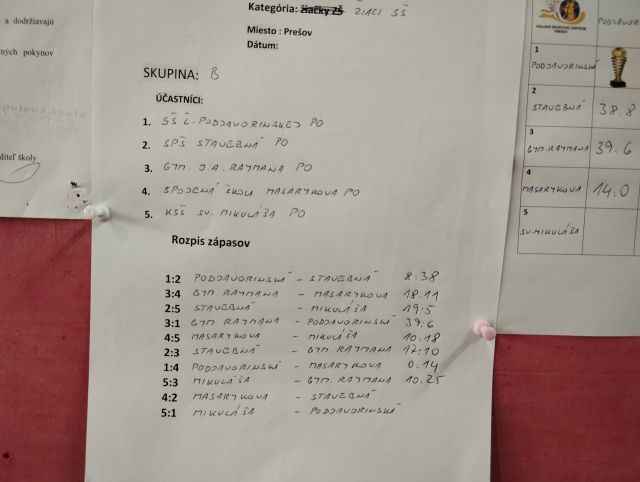 a dodržiavajú
ných pokynov
diteľ školy
Kategória: žiačky ZŠ ŽIACI SŠ
Miesto : Prešov
Dátum:
SKUPINA: B
ÚČASTNÍCI:
1. SŠ Ľ. PODJAVORINSKEJ PO
2. SPŠ STAVEBNÁ PO
3. GYM. J.A. RAYMANA PO
4. SPOJENÁ ŠKOLA MASARYKOVA PO
5. KSŠ SV. MIKULÁŠA PO
Rozpis zápasov
1:2 PODJAVORINSKÁ - STAVEBNÁ 8:38
3:4 GYM. RAYMANA - MASARYKOVA 18:11
2:5 STAVEBNÁ - MIKULÁŠA 19:5
3:1 GYM. RAYMANA - PODJAVORINSKÁ 39:6
4:5 MASARYKOVA - MIKULÁŠA 10:18
2:3 STAVEBNÁ - GYM. RAYMANA 17:10
1:4 PODJAVORINSKÁ - MASARYKOVA 0:14
5:3 MIKULÁŠA - GYM. RAYMANA 10:25
4:2 MASARYKOVA - STAVEBNÁ
5:1 MIKULÁŠA - PODJAVORINSKÁ
KRAJSKÉ ŠPORTOVÉ CENTRUM
PREŠOV
1
PODJAVORINSKÁ
2
STAVEBNÁ 38:8
3
GYM. RAYMANA 39:6
4
MASARYKOVA 14:0
5
SV. MIKULÁŠA